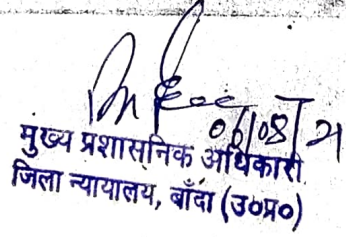 06/08/21
मुख्य प्रशासनिक अधिकारी
जिला न्यायालय, बाँदा (उ०प्र०)